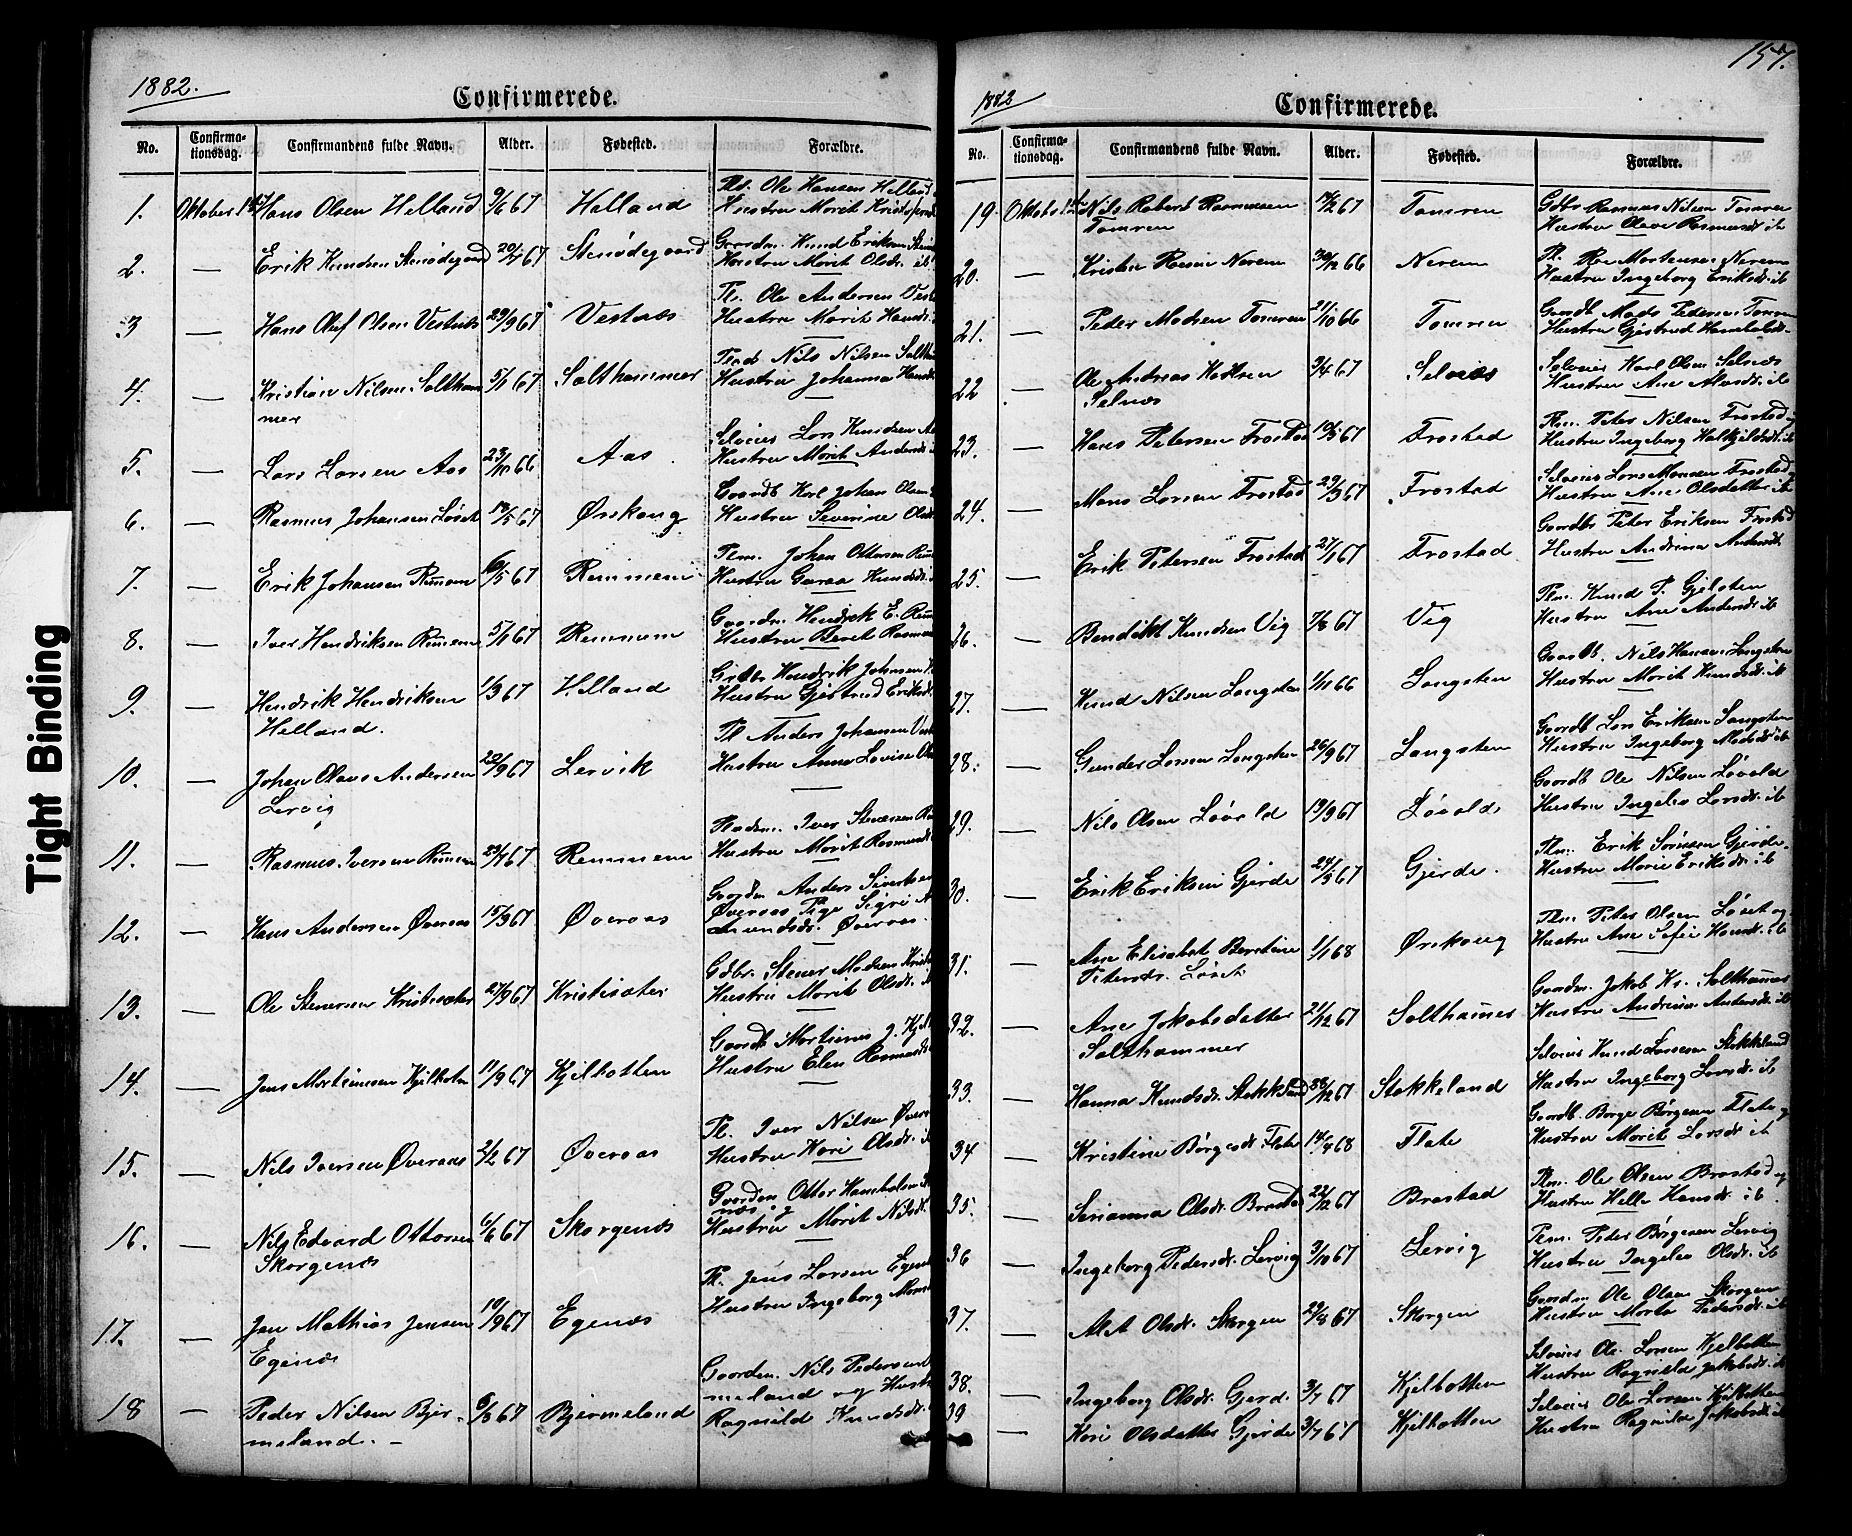 Tight Binding
1882.
Confirmerede.
No. Confirma-tionsdag. Confirmandens fulde Navn. Alder. Fødested. Forældre.
1. Oktober 1 Hans Olsen Helland 9/6 67 Helland Pls. Ole Hansen Helland
Hustru Marit
2. — Erik Knudsen Stenødegaard 20/7 67 Stenødegaard Gaardm. Knud Eriksen
Hustru Marit Olsdr. ib
3 — Hans Oluf Olsen Vestnæs 29/9 67 Vestnæs Pl. Ole Andersen
Hustru Marit Hansdr.
4. — Kristian Nilsen Saltham
mer 5/1 67 Salthammer Nils Nilsen
Hustru Johanna
5. — Lars Larsen Aas 23/10 66 Aas Selveier Lars Knudsen
Hustru Marit Andersdr.
6. — Rasmus Johansen Løset 14/5 67 Ørskoug Gaardb Karl Johan Olsen
Hustru Severine
7. — Erik Johansen Remmem 6/5 67 Remmem Plm. Johan Ottersen
Hustru Knudsdr.
8. — Iver Hendriksen Remmem 5/1 67 Remmem Gaardm. Hendrik E.
Hustru Berit
9. — Hendrik Hendriksen
Helland. 1/3 67 Helland Hendrik Johnsen
Hustru Gjertrud Eriksdr.
10. — Johan Olaus Andersen
Lervig 22/9 67 Lervik Pl Anders Johansen
Hustru Anna Lovise
11. — Rasmus Iversen Remmem 23/7 67 Remmem Iver
Hustru Marit
12. — Hans Andersen Øveraas 15/9 67 Øveraas Gaardm Anders Sivertsen
Øveraas Pige Sigri
Øveraas.
13. — Ole Stenersen Kristisæter 27/9 67 Kristisæter Gdbr. Stener Madsen
Hustru Marit Olsdr. ib
14. — Jens Martinusen Kjelbotn 11/9 67 Kjelbotten Gaardb Martinus J.
Hustru Elen
15. — Nils Iversen Øveraas 2/2 67 Øveraas Pl. Iver Nilsen
Hustru Kari Olsdr. ib
16. — Nils Edvard Ottersen
Skorgenæs 6/6 67 Skorgenæs Gaardm Otter
Hustru Marit Nilsdr.
17. — Jan Mathias Jensen
Egenæs 10/9 67 Egenæs Pl. Jens Larsen
Hustru Ingeborg
18 — Peder Nilsen Bjer-
meland. — 6/3 67 Bjermeland Gaardm. Nils Pedersen
meland og
Ragnild Knudsdr.
157.
1882
Confirmerede.
No. Confirma-tionsdag. Confirmandens fulde Navn. Alder. Fødested. Forældre.
19. Oktober 1 Nils Robert Rasmussen
Tomren 14/2 67 Tomren Gdbr Rasmus Nilsen Tomren
Hustru Olave Rasmusdr ib
20. — Nerem 30/12 66 Nerem Pl. Mortensen Nerem
Hustru Ingeborg Eriksdr. ib
21. — Peder Madsen Tomren 21/10 66 Tomren Gaardb Mads Pedersen
Hustru Gjertrud
22 — Ole Andreas Karlsen
Selnæs 3/4 67 Selnæs Selveier Karl Olsen Selnæs
Hustru Ane ib
23. — Hans Petersen Frostad 10/5 67 Frostad Plm. Peter Nilsen Frostad
Hustru Ingeborg ib
24. — Mons Larsen Frostad 29/3 67 Frostad Selveier Lars Monsen Frostad
Hustru Ane Olsdatter ib
25. — Erik Petersen Frostad 27/1 67 Frostad Gaardbr Peter Eriksen Frostad
Hustru Andrine Andersdr
26. — Bendikt Knudsen Vig 7/8 67 Vig Plm. Knud P. Gjelsten
Hustru Ane Andersdr ib
27. — Knud Nilsen Langsten 1/11 66 Langsten Gaardb. Nils Hansen Langsten
Hustru Marit Knudsdr. ib
28. — Gunder Larsen Langsten 26/9 67 Langsten Gaardb Lars Eriksen Langsten
Hustru Ingeborg Madsdr ib
29. — Nils Olsen Løvold 13/9 67 Løvold Gaardb Ole Nilsen Løvold
Hustru Larsdr. ib
30. — Erik Eriksen Gjerde 24/5 67 Gjerde. Plm. Erik Gjerde.
Hustru Marie Eriksdr. ib
31. — Ane Elisabet Berntine
Petersdr. Løset 1/1 68 Ørskoug Plm. Peter Olsen Løset og
Hustru Ane Sofie Hansdr. ib
32. — Ane Jakobsdatter
Salthammer 21/12 67 Salthames Gaardm. Jakob Kr.
Hustru Andrine Andersdr. ib
33. — Hanna Knudsdr. Stokkeland /12 67 Stokkeland Selveier Knud Larsen Stokkeland
Hustru Ingeborg Larsdr. ib
34 — Kristine Børgesdr. Flate 14/4 68 Flate Gaardb. Børge Børgesen Flate og
Hustru Marit Larsdr ib
35. — Serianna Olsdr. Brastad 22/12 67 Brastad Plm. Ole Olsen Brastad og
Hustru Helle Hansdr. ib.
36 — Ingeborg Pedersdr. Lervig 3/10 67 Lervig Plm. Peder Børgesen Lervig
Hustru Olsdr. ib
37. — Olsdr. Skorgen 29/8 67 Skorgen Gaardm Ole Olsen Skorgen
Hustru Marta Pedersdr. ib
38. — Ingeborg Olsdr. Gjerd. 3/7 67 Kjelbotten Selveier Ole Larsen Kjelbotten
Hustru Ragnild Jakobsdr. ib
39 — Kari Olsdatter Gjerde 3/7 67 Kjelbotten Selveier Ole Larsen Kjelbotten
Hustru Ragnilde Jakobsdr. ib